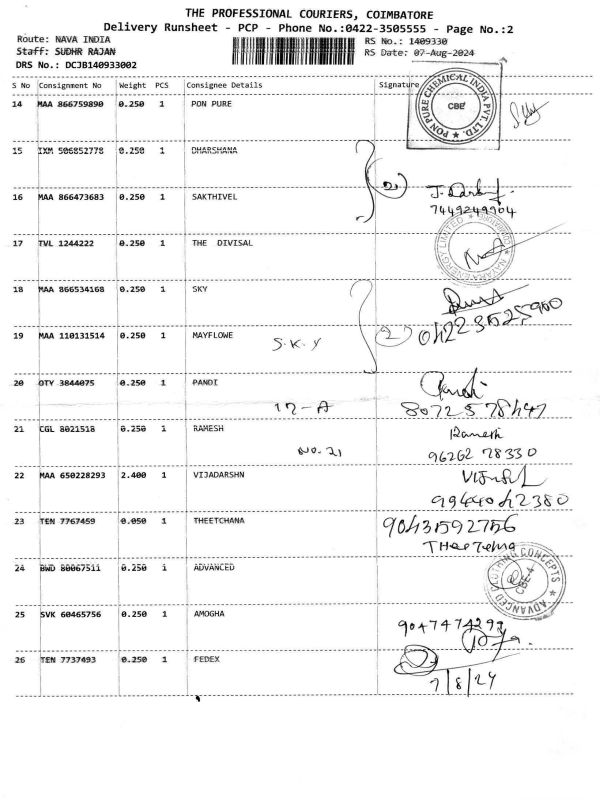 THE PROFESSIONAL COURIERS, COIMBATORE
Delivery Runsheet - PCP - Phone No.:0422-3505555 - Page No.:2
Route: NAVA INDIA RS No.: 1409330
Staff: SUDHR RAJAN RS Date: 07-Aug-2024
DRS No.: DCJB140933002
S No Consignment No Weight PCS Consignee Details Signature
PON PURE CHEMICAL INDIA PVT. LTD. ★ CBE
14 MAA 866759890 0.250 1 PON PURE
15 IXM 506852778 0.250 1 DHARSHANA
2)
16 MAA 866473683 0.250 1 SAKTHIVEL
7449249904
17 TVL 1244222 0.250 1 THE DIVISAL
LIMITED
18 MAA 866534168 0.250 1 SKY
19 MAA 110131514 0.250 1 MAYFLOWE
S.K.Y
2) 04223525900
20 OTY 3844075 0.250 1 PANDI
Pandi
12-A 8072578447
21 CGL 8021518 0.250 1 RAMESH
Ramesh
NO. 21 96262 78330
22 MAA 650228293 2.400 1 VIJADARSHN
9944042380
23 TEN 7767459 0.050 1 THEETCHANA
9043592756
24 BWD 80067511 0.250 1 ADVANCED
ADVANCED CLOTHING CONCEPTS ★ CBE-4
25 SVK 60465756 0.250 1 AMOGHA
26 TEN 7737493 0.250 1 FEDEX
7/8/24